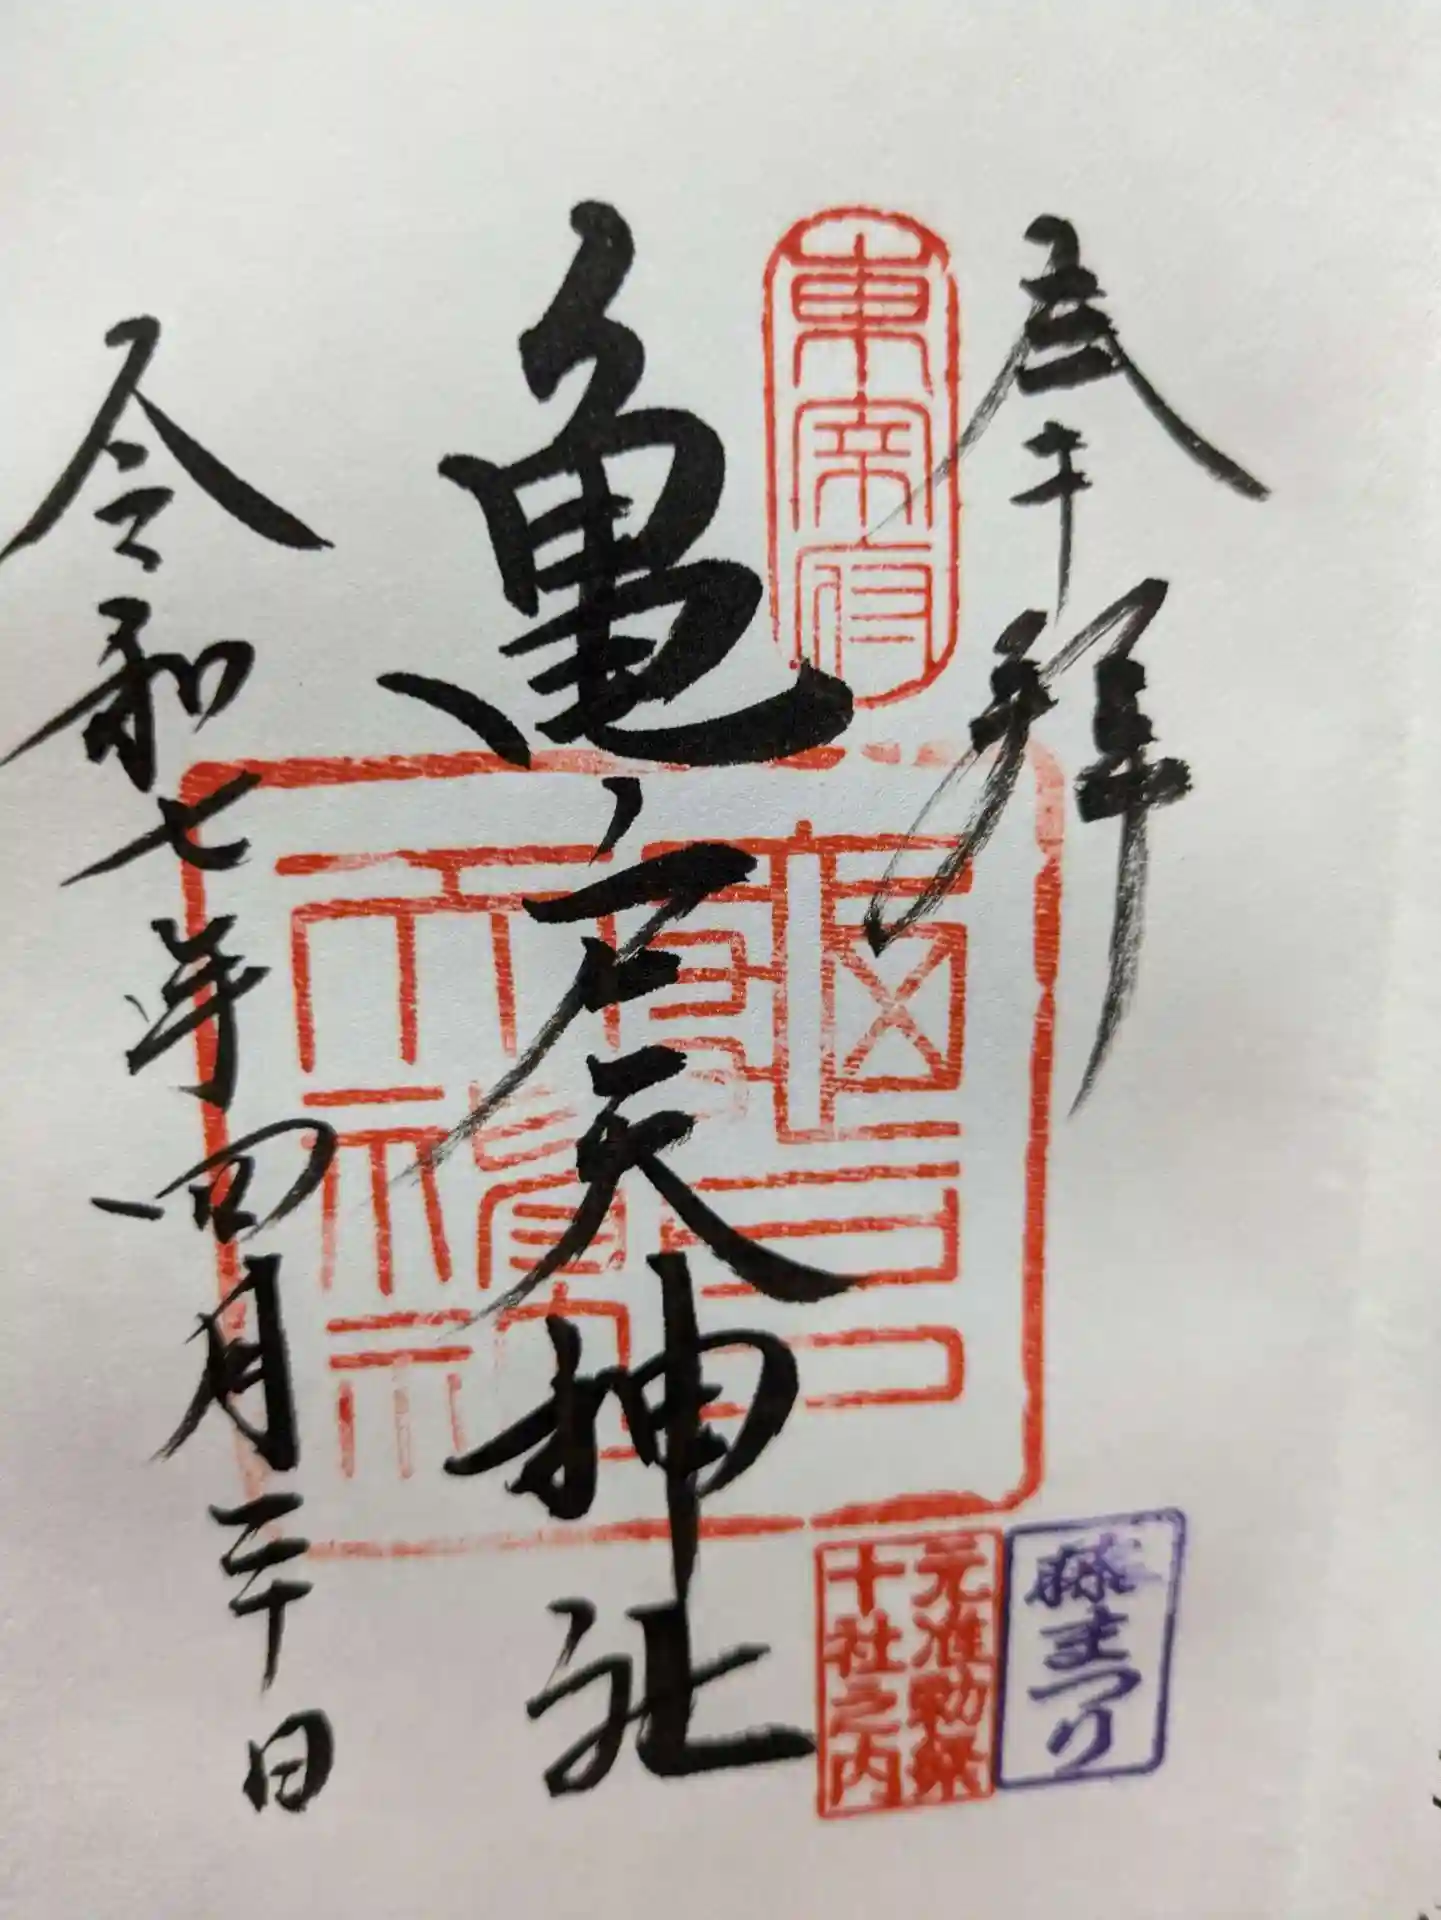 奉拝
東宰府
亀戸天神社
令和七年四月二十日
元准勅祭
十社之内
藤まつり